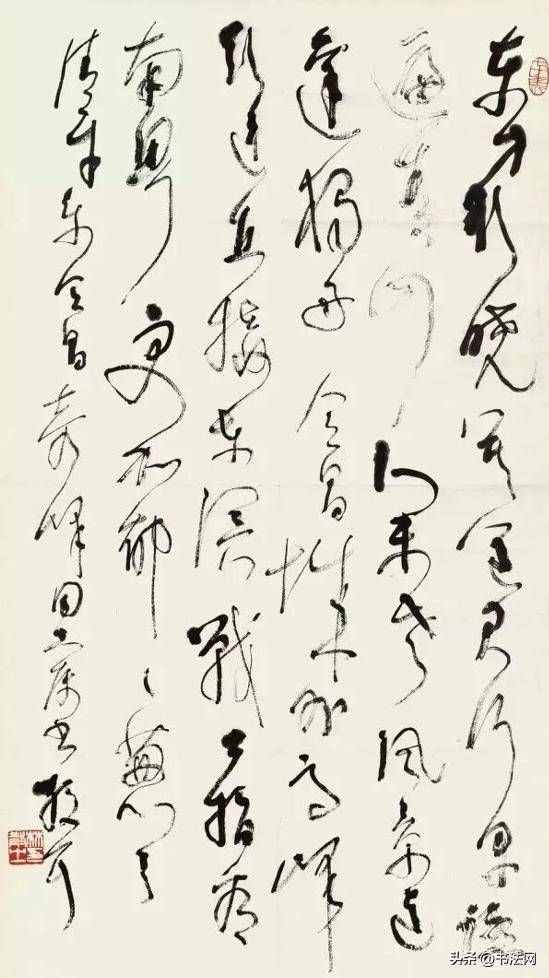 东方欲晓莫道君行早踏
遍青山人未老风景这
边独好会昌城外高峰
颠连直接东溟战士指看
南粤更加郁〻葱〻
清平乐会昌奇峰同志属书散耳
头条 @书法网